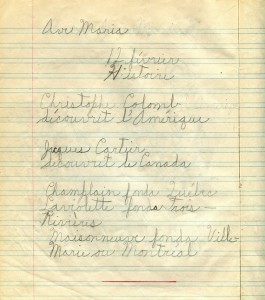 Ave Maria
12 février
Histoire
Christophe Colomb
découvret L'Amérique
Jaques Cartier
découvret le Canada
Champlain fonda Québec
Laviolette fonda trois-
Rivières
Maisonneuve fonda Ville-
Marie ou Montréal